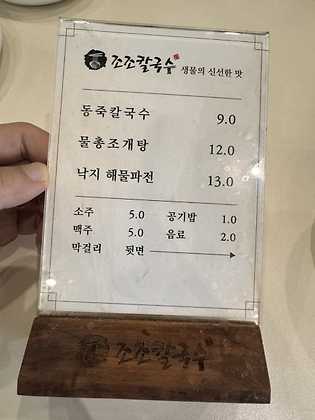 조조칼국수 생물의 신선한 맛
동죽칼국수 9.0
물총조개탕 12.0
낙지 해물파전 13.0
소주 5.0 공기밥 1.0
맥주 5.0 음료 2.0
막걸리 뒷면
조조칼국수